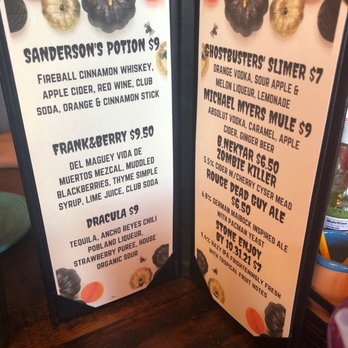 SANDERSON'S POTION $9
FIREBALL CINNAMON WHISKEY,
APPLE CIDER, RED WINE, CLUB
SODA, ORANGE & CINNAMON STICK
FRANK&BERRY $9.50
DEL MAGUEY VIDA DE
MUERTOS MEZCAL, MUDDLED
BLACKBERRIES, THYME SIMPLE
SYRUP, LIME JUICE, CLUB SODA
DRACULA $9
TEQUILA, ANCHO REYES CHILI
POBLANO LIQUEUR,
STRAWBERRY PUREE, HOUSE
ORGANIC SOUR
GHOSTBUSTERS' SLIMER $7
ORANGE VODKA, SOUR APPLE &
MELON LIQUEUR, LEMONADE
MICHAEL MYERS MULE $9
ABSOLUT VODKA, CARAMEL, APPLE
CIDER, GINGER BEER
B.NEKTAR $6.50
ZOMBIE KILLER
5.5% CIDER W/CHERRY CYSER MEAD
ROUGE DEAD GUY ALE
$6.50
6.8% GERMAN MAIBOCK INSPIRED ALE
WITH PACMAN YEAST
STONE ENJOY
BY 10.31.21 $7
9.4% HAZY IPA FRIGHTENINGLY FRESH
WITH TROPICAL FRUIT NOTES